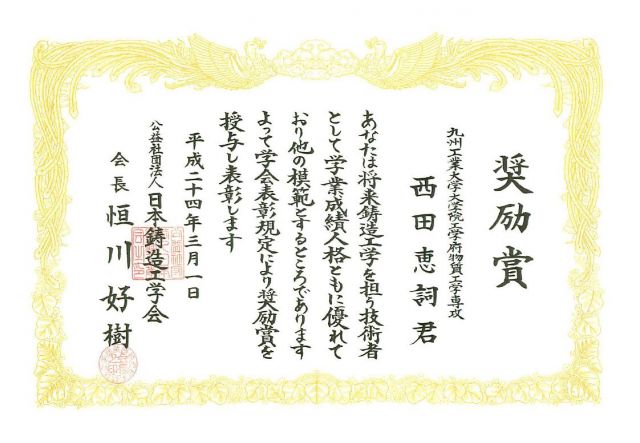 奨励賞
九州工業大学大学院工学府物質工学専攻
西田恵詞君
あなたは将来鋳造工学を担う技術者
として学業成績人格ともに優れて
おり他の模範とするところであります
よって学会表彰規定により奨励賞を
授与し表彰します
平成二十四年三月一日
公益社団法人日本鋳造工学会
会長恒川好樹